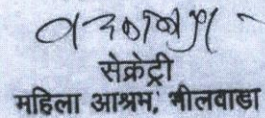 सेक्रेट्री
महिला आश्रम, भीलवाडा